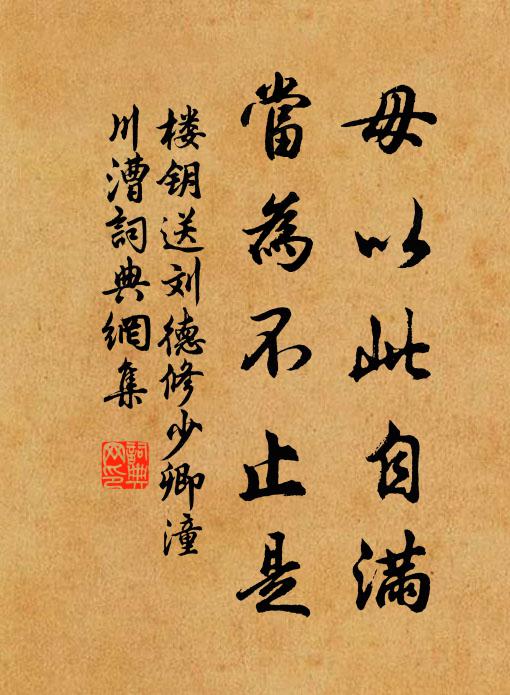 毋以此自滿
當為不止是
楼钥送刘德修少卿潼
川漕詞典網集
詞典
网印